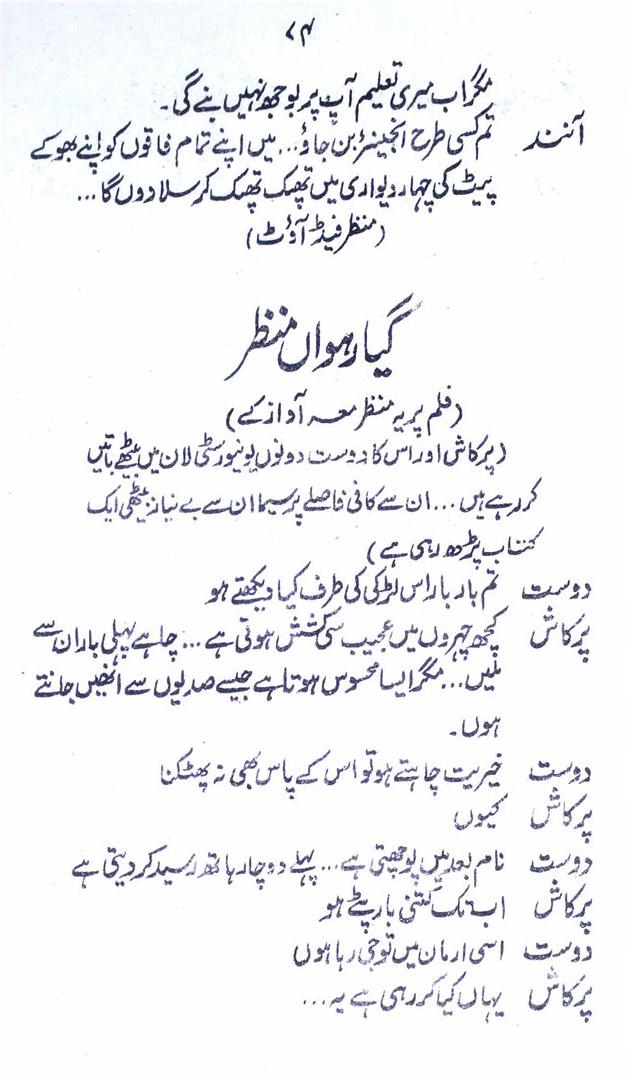 ۷۴
مگر اب میری تعلیم آپ پر بوجھ نہیں بنے گی۔
آنند تم کسی طرح انجینئر بن جاؤ... میں اپنے تمام فاقوں کو اپنے بھوکے
پیٹ کی چہار دیواری میں تھپک تھپک کر سلا دوں گا...
(منظر فیڈ آؤٹ)
گیارہواں منظر
(فلم پر یہ منظر معہ آواز کے)
(پرکاش اور اس کا دوست دونوں یونیورسٹی لان میں بیٹھے باتیں
کر رہے ہیں... ان سے کافی فاصلے پر سیما ان سے بے نیاز بیٹھی ایک
کتاب پڑھ رہی ہے)
دوست تم بار بار اس لڑکی کی طرف کیا دیکھتے ہو
پرکاش کچھ چہروں میں عجیب سی کشش ہوتی ہے... چاہے پہلی بار ان سے
ملیں... مگر ایسا محسوس ہوتا ہے جیسے صدیوں سے انھیں جانتے
ہوں۔
دوست خیریت چاہتے ہو تو اس کے پاس بھی نہ پھٹکنا
پرکاش کیوں
دوست نام بعد میں پوچھتی ہے... پہلے دو چار ہاتھ رسید کر دیتی ہے
پرکاش اب تک کتنی بار پٹے ہو
دوست اسی ارمان میں تو جی رہا ہوں
پرکاش یہاں کیا کر رہی ہے یہ...